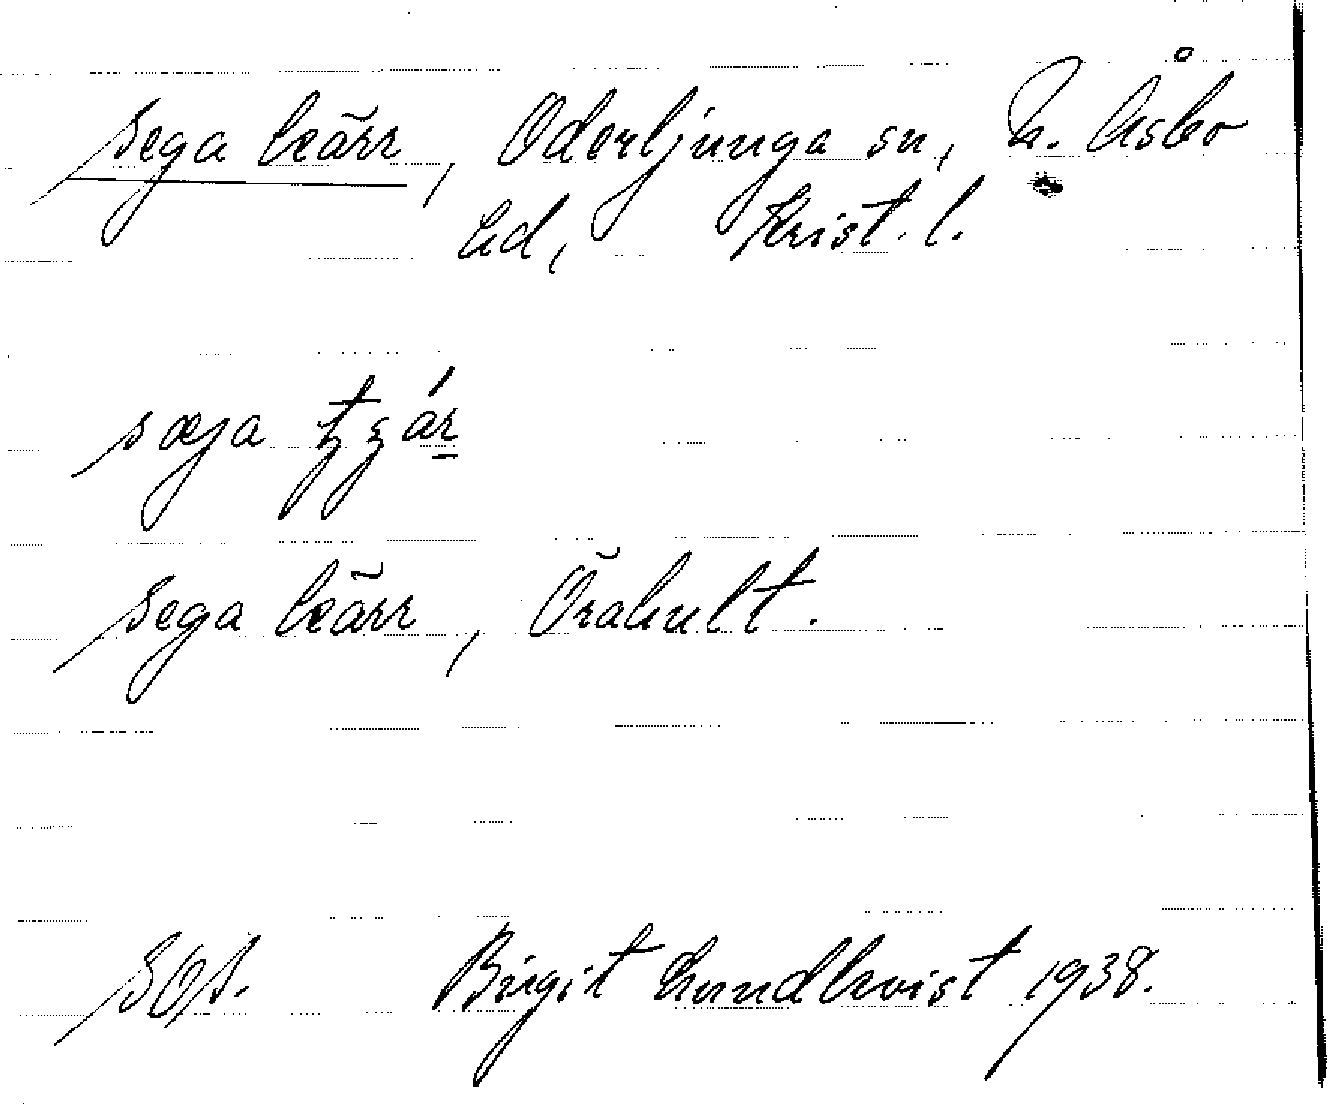 Sega kärr, Oderljunga sn, N. Åsbo
hd, Krist. l.
sega kärr, Örahult.
SOA. Birgit Lundkvist 1938.